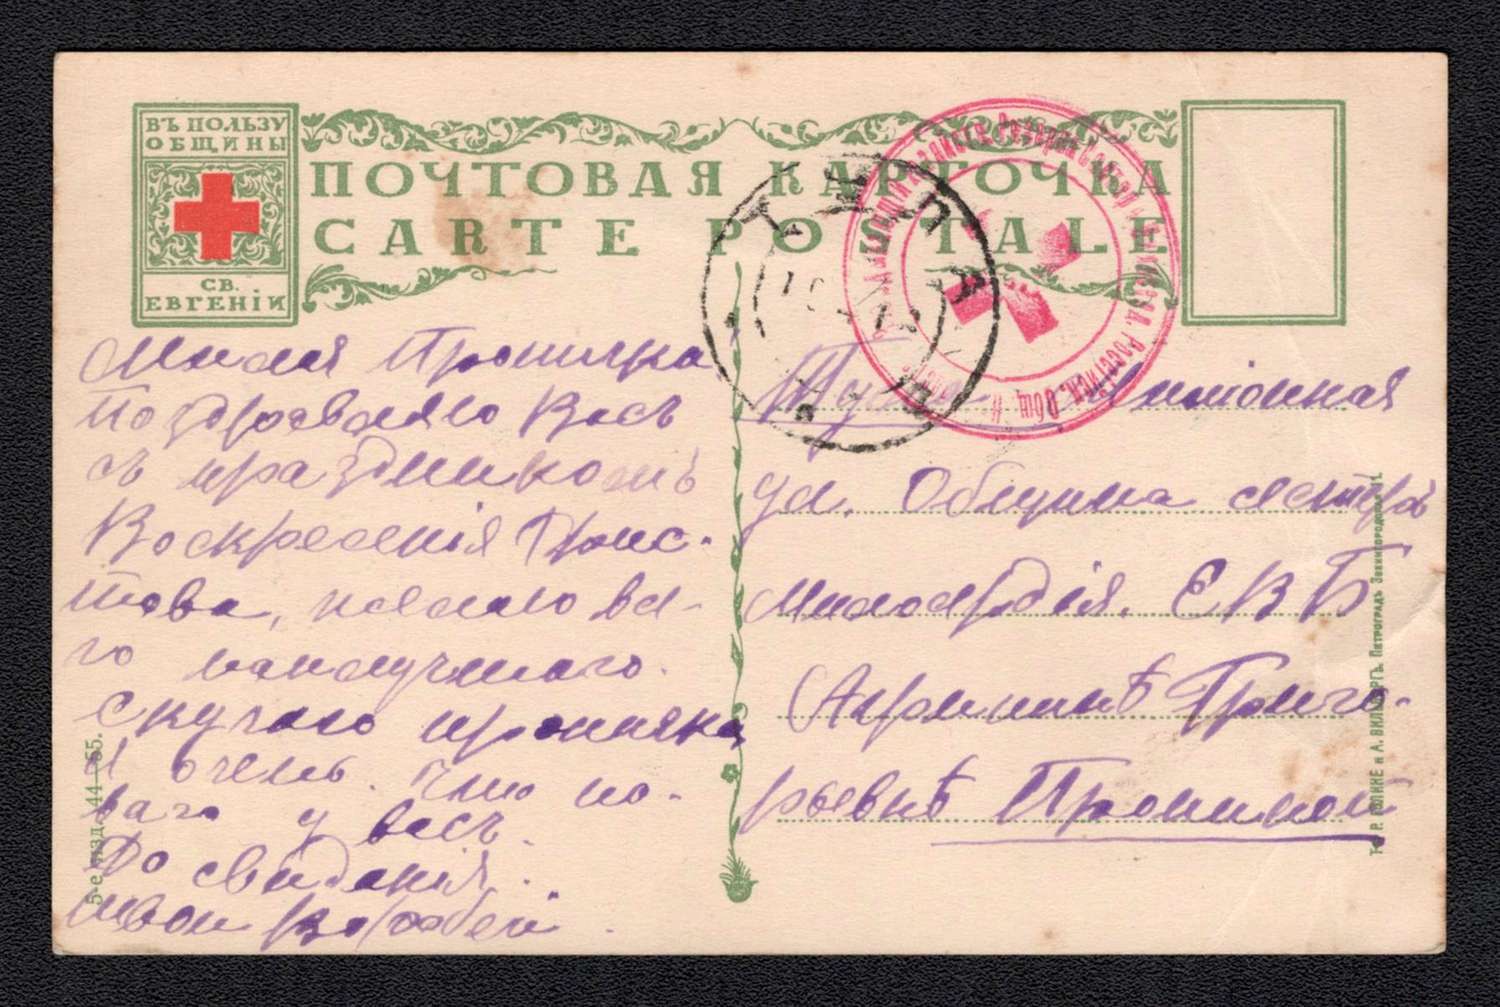 ВЪ ПОЛЬЗУ
ОБЩИНЫ
СВ.
ЕВГЕНІИ
ПОЧТОВАЯ КАРТОЧКА
CARTE POSTALE
ТУЛА
Милая Проничка
Поздравляю Васъ
съ праздникомъ
Воскресенія Хрис-
това, желаю все-
го наилучшаго.
Скучаю проничка
я очень. что но-
ваго у васъ.
До свиданія.
твой Воробей.
Тула
ул. Община сестеръ
Милосердія. ЕВБ
Агрипинѣ Григо-
рьевнѣ Прониной
5-е изд. 44—55.
Т-во Р. ГОЛИКЕ и А. ВИЛЬБОРГЪ. Петроградъ. Звенигородская, 11.